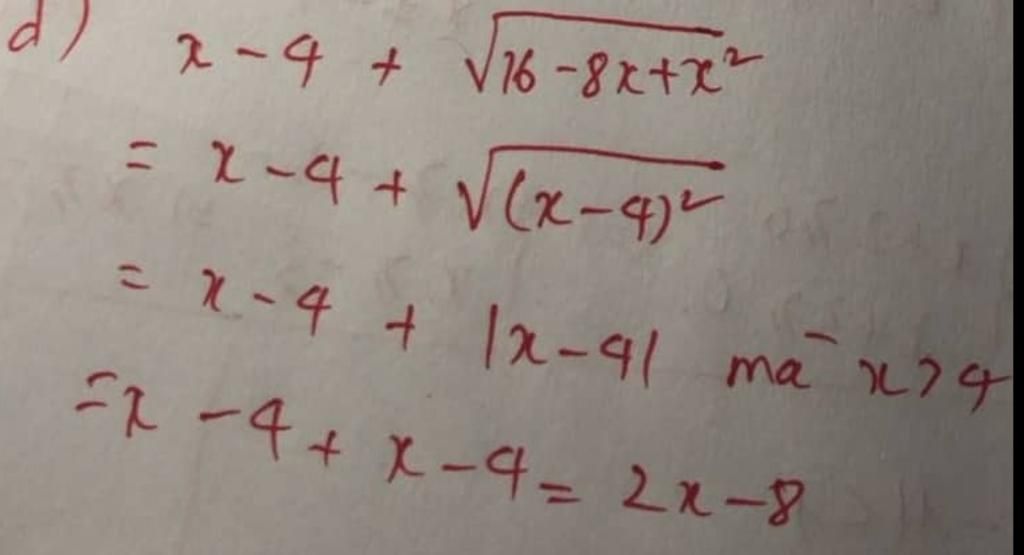 d) x - 4 + √16 - 8x + x²
= x - 4 + √(x - 4)²
= x - 4 + |x - 4| mà x > 4
= x - 4 + x - 4 = 2x - 8